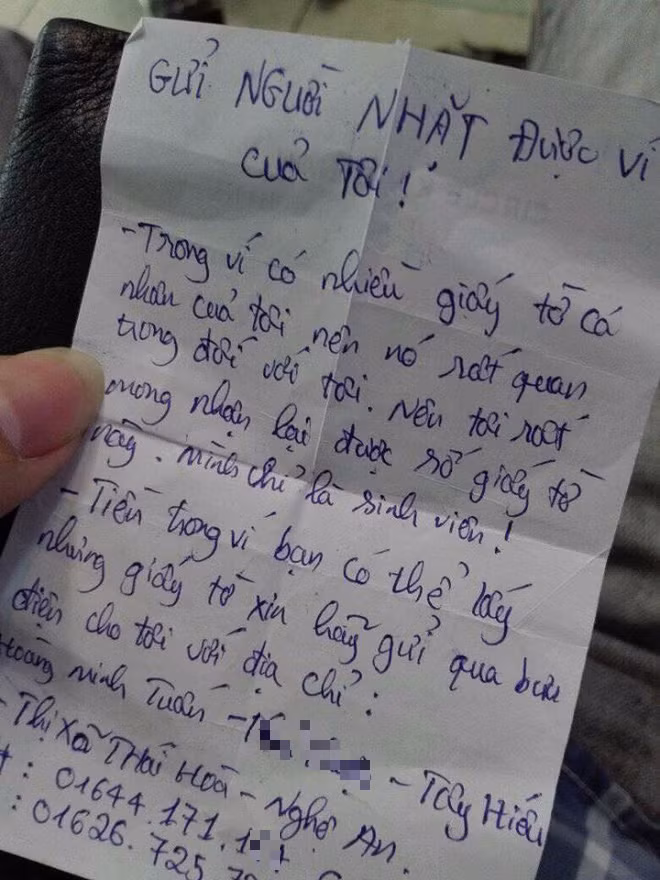 GỬI NGƯỜI NHẶT ĐƯỢC VÍ
CỦA TÔI!
- Trong ví có nhiều giấy tờ cá
nhân của tôi nên nó rất quan
trọng đối với tôi. Nên tôi rất
mong nhận lại được số giấy tờ
này. Mình chỉ là sinh viên!
- Tiền trong ví bạn có thể lấy
nhưng giấy tờ xin hãy gửi qua bưu
điện cho tôi với địa chỉ:
Hoàng Minh Tuấn - - Tây Hiếu
- Thị Xã THái Hoà - Nghệ An.
: 01644.171.1
: 01626.725.7